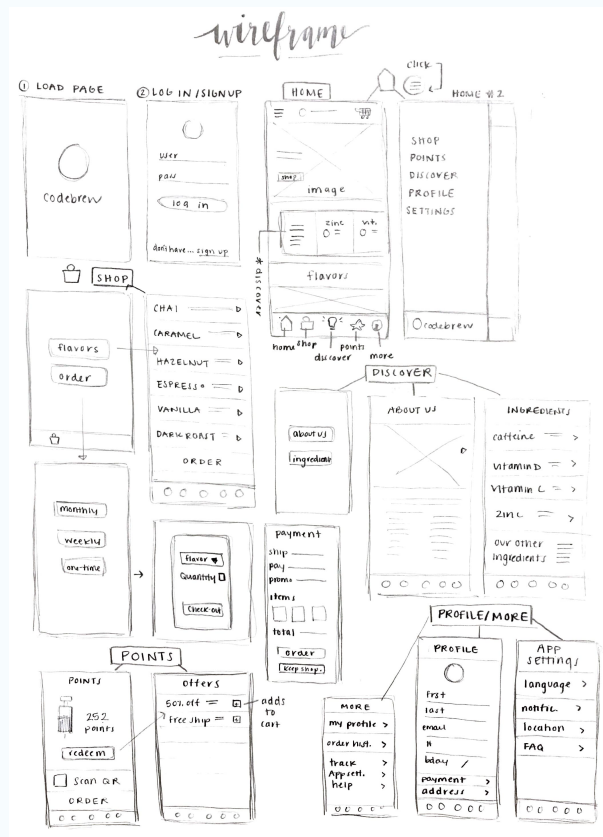 wireframe
① LOAD PAGE
codebrew
② LOG IN/SIGNUP
user
pass
log in
don't have... sign up
HOME
click
shop
image
zinc
vit.
flavors
* discover
home
shop
discover
points
more
HOME #2
SHOP
POINTS
DISCOVER
PROFILE
SETTINGS
codebrew
SHOP
flavors
order
CHAI
CARAMEL
HAZELNUT
ESPRESSO
VANILLA
DARK ROAST
ORDER
monthly
weekly
one-time
flavor
Quantity
Check out
payment
ship
pay
promo
items
total
order
keep shop.
DISCOVER
about us
ingredients
ABOUT US
INGREDIENTS
caffeine
vitamin D
vitamin C
zinc
our other
ingredients
POINTS
POINTS
252
points
redeem
Scan QR
ORDER
offers
50% off
free ship
adds
to
cart
PROFILE/MORE
MORE
my profile >
order hist. >
track >
App sett. >
help >
PROFILE
first
last
email
#
bday /
payment >
address >
APP
settings
language >
notific. >
location >
FAQ >